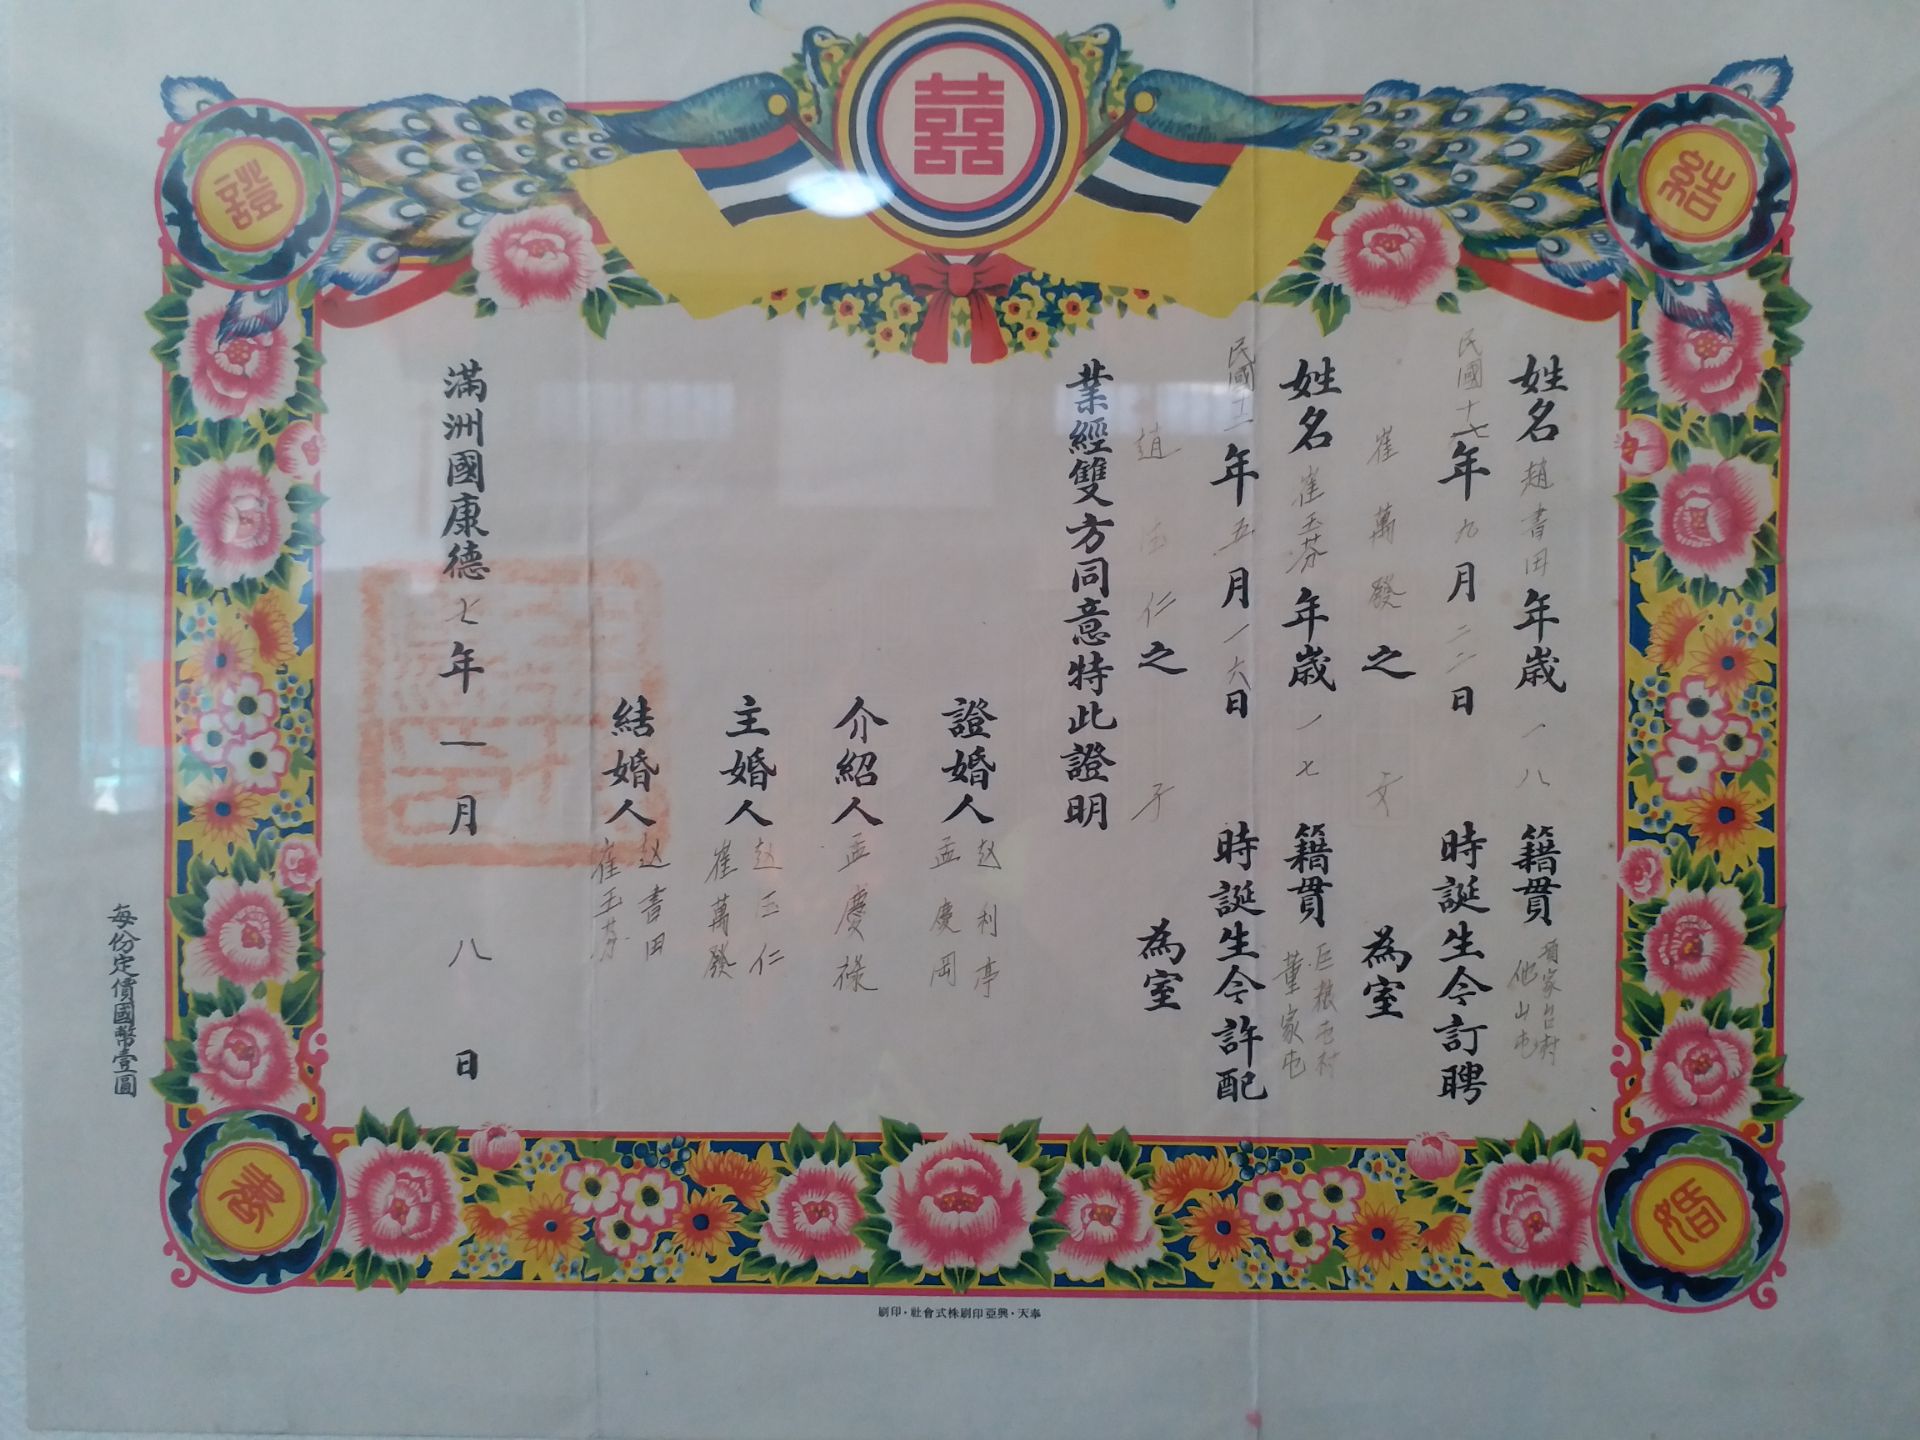 囍
結
婚
證
書
姓名趙書田年歲一八籍貫
他山屯
民國十七年九月二二日 時誕生今訂聘
崔萬發之 女 為室
姓名崔玉芬年歲一七籍貫
董家屯
民國十二年五月一六日 時誕生今許配
趙 仁之 子 為室
業經雙方同意特此證明
證婚人 赵利亭
孟慶
介紹人 孟慶祿
主婚人 赵 仁
崔萬發
結婚人 赵書田
崔玉芬
滿洲國康德七年一月八日
每份定價國幣壹圓
奉天・興亞印刷株式會社・印刷